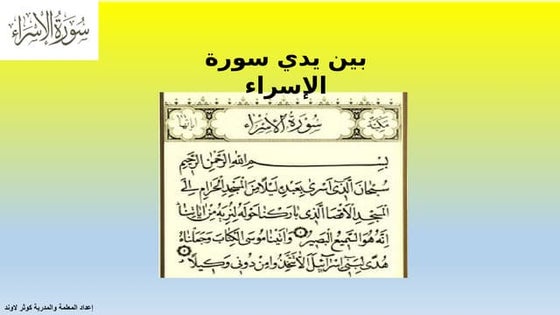 سورة الإسراء
بين يدي سورة
الإسراء
مكية
سورة الإسراء
بسم الله الرحمن الرحيم
سبحان الذي أسرى بعبده ليلا من المسجد الحرام إلى
المسجد الأقصا الذي باركنا حوله لنريه من آياتنا
إنه هو السميع البصير ١ وآتينا موسى الكتاب وجعلناه
هدى لبني إسرائيل ألا تتخذوا من دوني وكيلا
إعداد المعلمة والمدربة كوثر لاوند